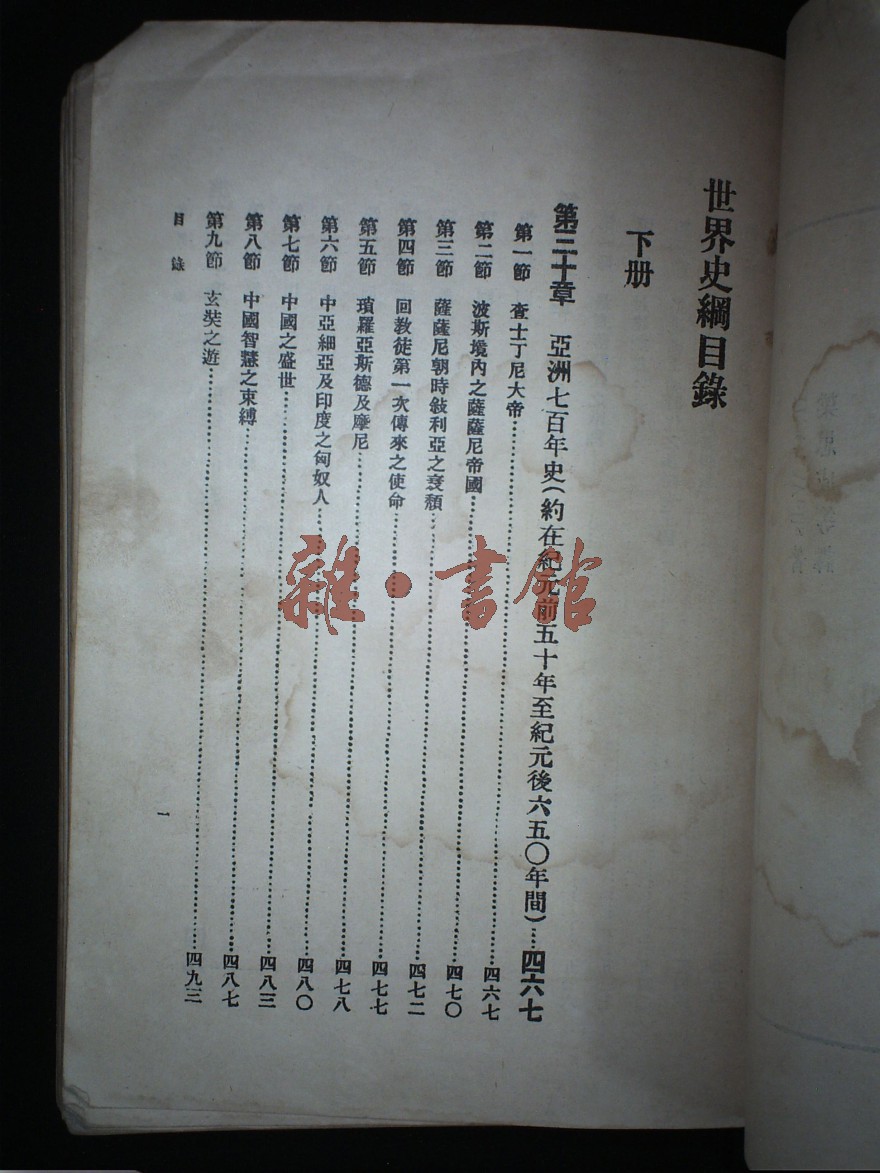 世界史綱目錄
下册
第二十章 亞洲七百年史(約在紀元前五十年至紀元後六五〇年間)……四六七
第一節 查士丁尼大帝……四六七
第二節 波斯境內之薩薩尼帝國……四七〇
第三節 薩薩尼朝時敍利亞之衰頹……四七二
第四節 回教徒第一次傳來之使命……四七七
第五節 瑣羅亞斯德及摩尼……四七八
第六節 中亞細亞及印度之匈奴人……四八〇
第七節 中國之盛世……四八三
第八節 中國智慧之束縛……四八七
第九節 玄奘之遊……四九三
目錄
一
雜·書館